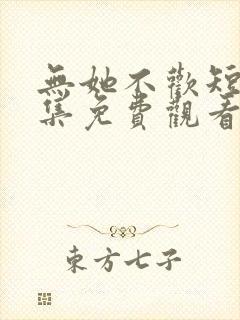 無她不歡短
集免費觀看
東方七子